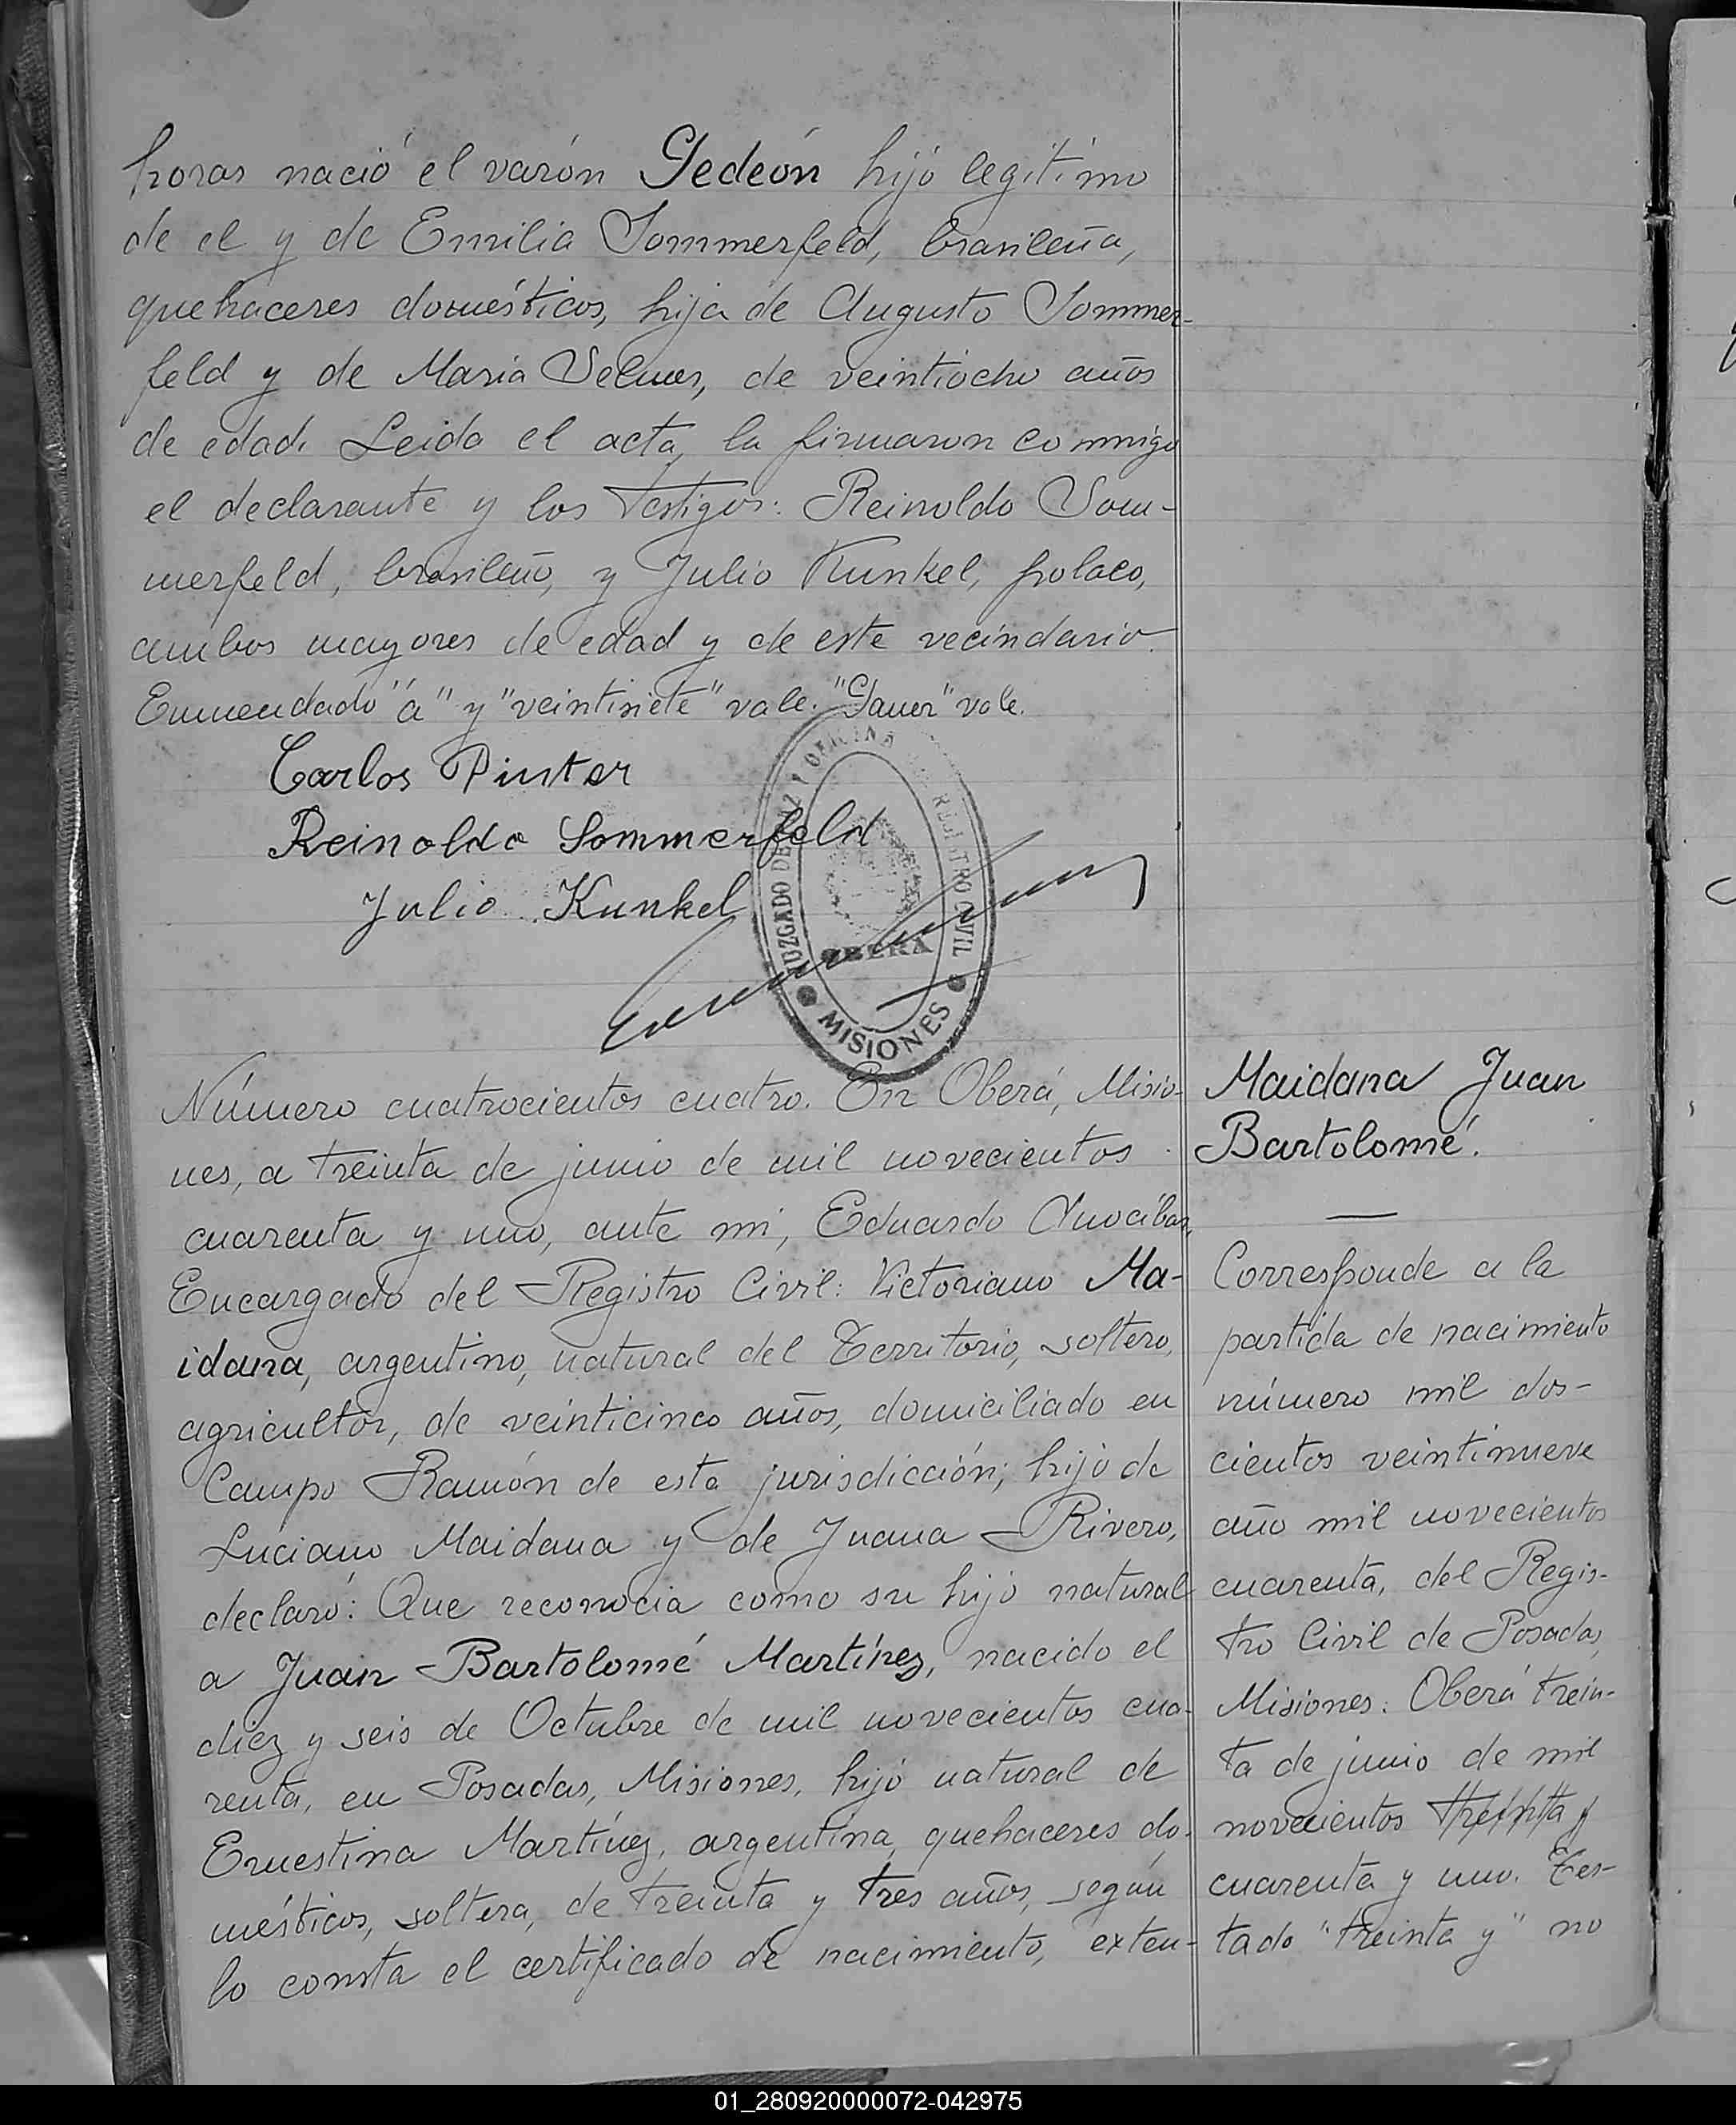 horas nació el varón Gedeón hijo legítimo
de el y de Emilia Sommerfeld, brasileña,
quehaceres domésticos, hija de Augusto Sommer-
feld y de Maria de veintiocho años
de edad. Leida el acta, la firmaron conmigo
el declarante y los testigos: Reinoldo Som-
merfeld, brasileño, y Julio Kunkel, polaco,
ambos mayores de edad y de este vecindario.
Enmendado "a" y "veintisiete" vale. vale.
Carlos Pinter
Reinoldo Sommerfeld
Julio Kunkel
JUZGADO DE PAZ Y OFICINA REGISTRO CIVIL
OBERA
MISIONES
Número cuatrocientos cuatro. En Oberá, Misio-
nes, a treinta de junio de mil novecientos
cuarenta y uno, ante mi, Eduardo
Encargado del Registro Civil: Victoriano Ma-
idana, argentino, natural del Territorio, soltero,
agricultor, de veinticinco años, domiciliado en
Campo Ramón de esta jurisdicción; hijo de
Luciano Maidana y de Juana Rivero,
declaró: Que reconocia como su hijo natural
a Juan Bartolomé Martínez, nacido el
diez y seis de Octubre de mil novecientos cua-
renta, en Posadas, Misiones, hijo natural de
Ernestina Martínez, argentina, quehaceres do-
mésticos, soltera, de treinta y tres años, según
lo consta el certificado de nacimiento, exten-
Maidana Juan
Bartolomé.
Corresponde a la
partida de nacimiento
número mil dos-
cientos veintinueve
año mil novecientos
cuarenta, del Regis-
tro Civil de Posadas,
Misiones. Oberá trein-
ta de junio de mil
novecientos treinta y
cuarenta y uno. Tes-
tado "treinta y" no
01_280920000072-042975